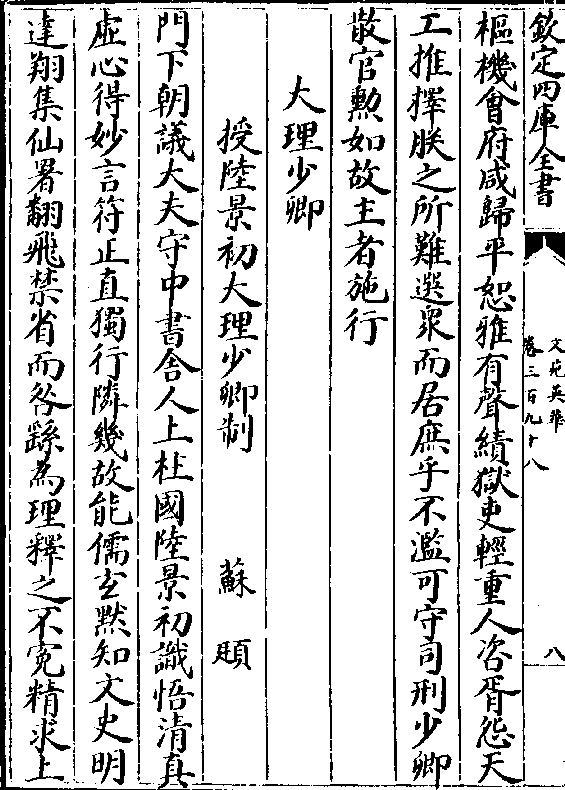 欽定四庫全書
文苑英華
卷三百九十八
八
樞機會府咸歸平恕雅有聲績獄吏輕重人咨胥怨天
工推擇朕之所難選衆而居庶乎不濫可守司刑少卿
散官勲如故主者施行
大理少卿
授陸景初大理少卿制 蘇頲
門下朝議大夫守中書舍人上柱國陸景初識悟清真
虛心得妙言符正直獨行隣幾故能儒玄黙知文史明
達翔集仙署翻飛禁省而咎繇為理釋之不寃精求上